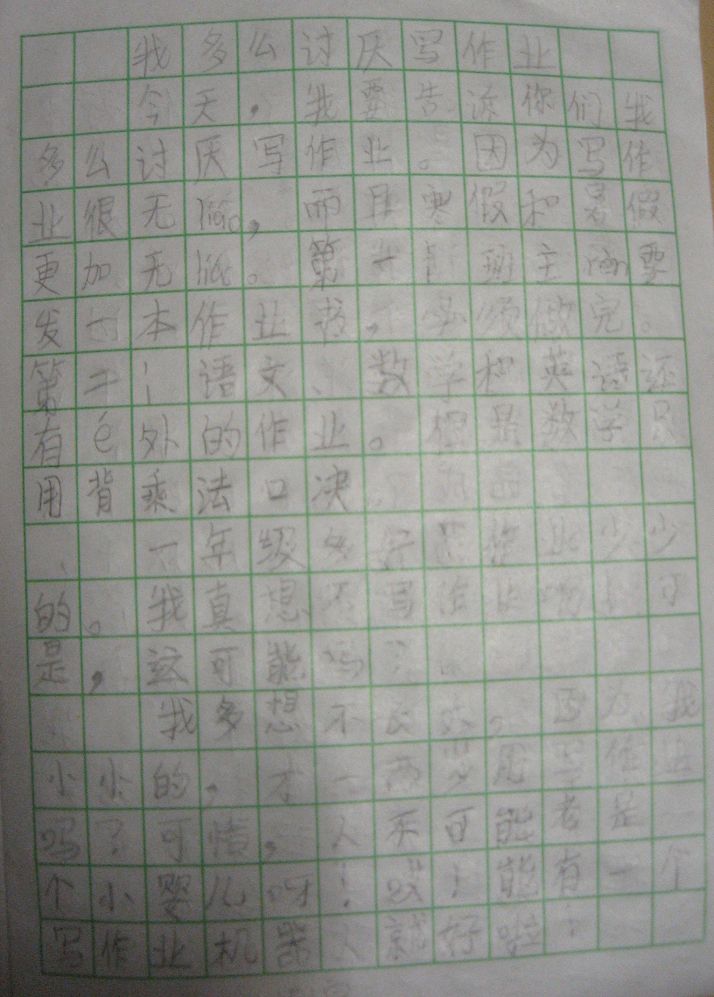 我多么讨厌写作业
今天，我要告诉你们我
多么讨厌写作业。因为写作
业很无liáo，而且寒假和暑假
更加无liáo。第一：班主rèn要
发一本作业书，必须做完。
第二：语文、数学和英语还
有é外的作业。但是数学只
用背乘法口决
一年级多好作业少少
的。我真想不写作业可
是，这可能吗？
我多想不长大，因为我
小小的，才一两岁用写作业
吗？可惜，人不可能老是一
个小婴儿呀！哎！能有一个
写作业机器人就好啦！